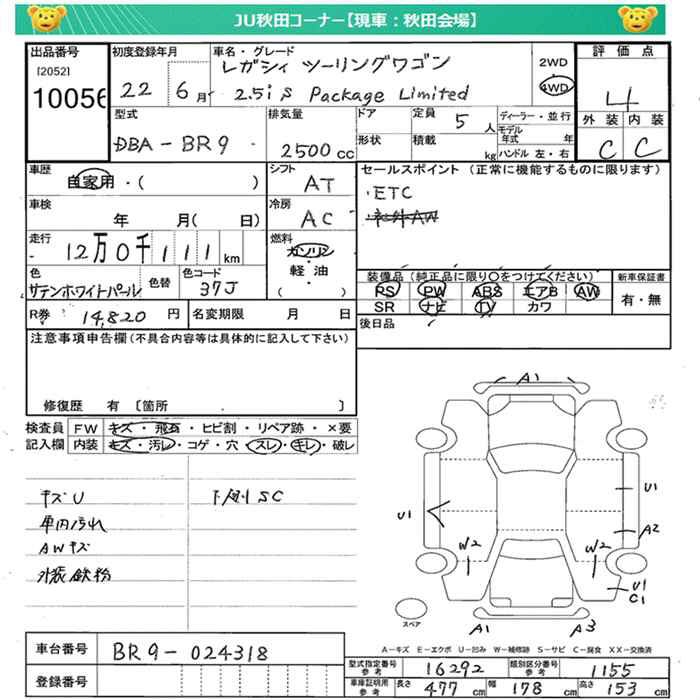 JU秋田コーナー【現車：秋田会場】
出品番号
[2052]
10056
初度登録年月
22 6月
車名・グレード
レガシィ ツーリングワゴン
2.5i S Package Limited
2WD
4WD
評価点
4
外装 内装
C C
型式
DBA-BR9
排気量
2500cc
ドア
形状
定員 5人
積載 kg
ディーラー・並行
モデル年式 年
ハンドル 左・右
車歴
自家用・( )
シフト
AT
セールスポイント (正常に機能するものに限ります)
ETC
社外AW
車検
年 月( 日)
冷房
AC
走行
12万0千111km
燃料
ガソリン
軽油
( )
装備品 (純正品に限り○をつけてください)
PS PW ABS エアB AW
SR ナビ TV カワ
新車保証書
有・無
色
サテンホワイトパール
色替
色コード
37J
R券 14,820円
名変期限 月 日
後日品
注意事項申告欄(不具合内容等は具体的に記入して下さい)
修復歴 有 〔箇所 〕
検査員記入欄
FW キズ・飛石・ヒビ割・リペア跡・×要
内装 キズ・汚レ・コゲ・穴・スレ・キレ・破レ
キズU
車内汚れ
AWキズ
外装鉄粉
下廻SC
A1
U1
U1
A2
W2
W2
U1
C1
A1
A3
スペア
A－キズ E－エクボ U－凹み W－補修跡 S－サビ C－腐食 XX－交換済
車台番号 BR9-024318
登録番号
型式指定番号 参考 16292
類別区分番号 参考 1155
車庫証明用 参考 長さ 477cm 幅 178cm 高さ 153cm